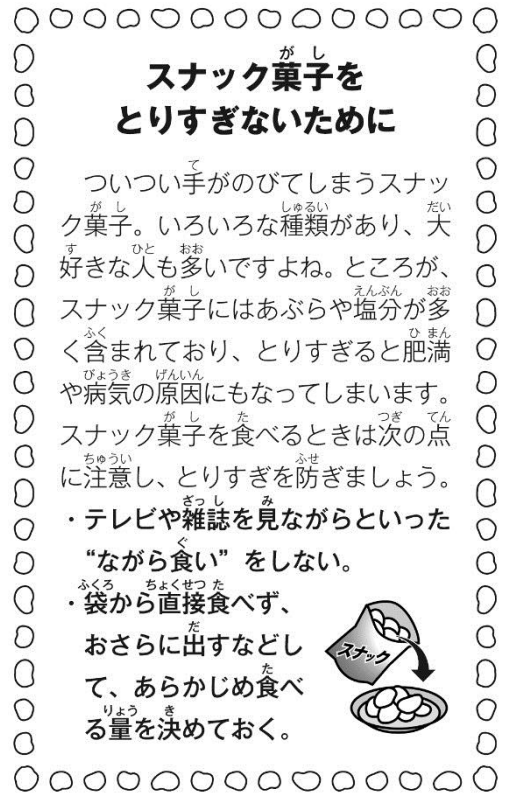 スナック菓子を
とりすぎないために
ついつい手がのびてしまうスナッ
ク菓子。いろいろな種類があり、大
好きな人も多いですよね。ところが、
スナック菓子にはあぶらや塩分が多
く含まれており、とりすぎると肥満
や病気の原因にもなってしまいます。
スナック菓子を食べるときは次の点
に注意し、とりすぎを防ぎましょう。
・テレビや雑誌を見ながらといった
“ながら食い”をしない。
・袋から直接食べず、
おさらに出すなどし
て、あらかじめ食べ
る量を決めておく。
スナック